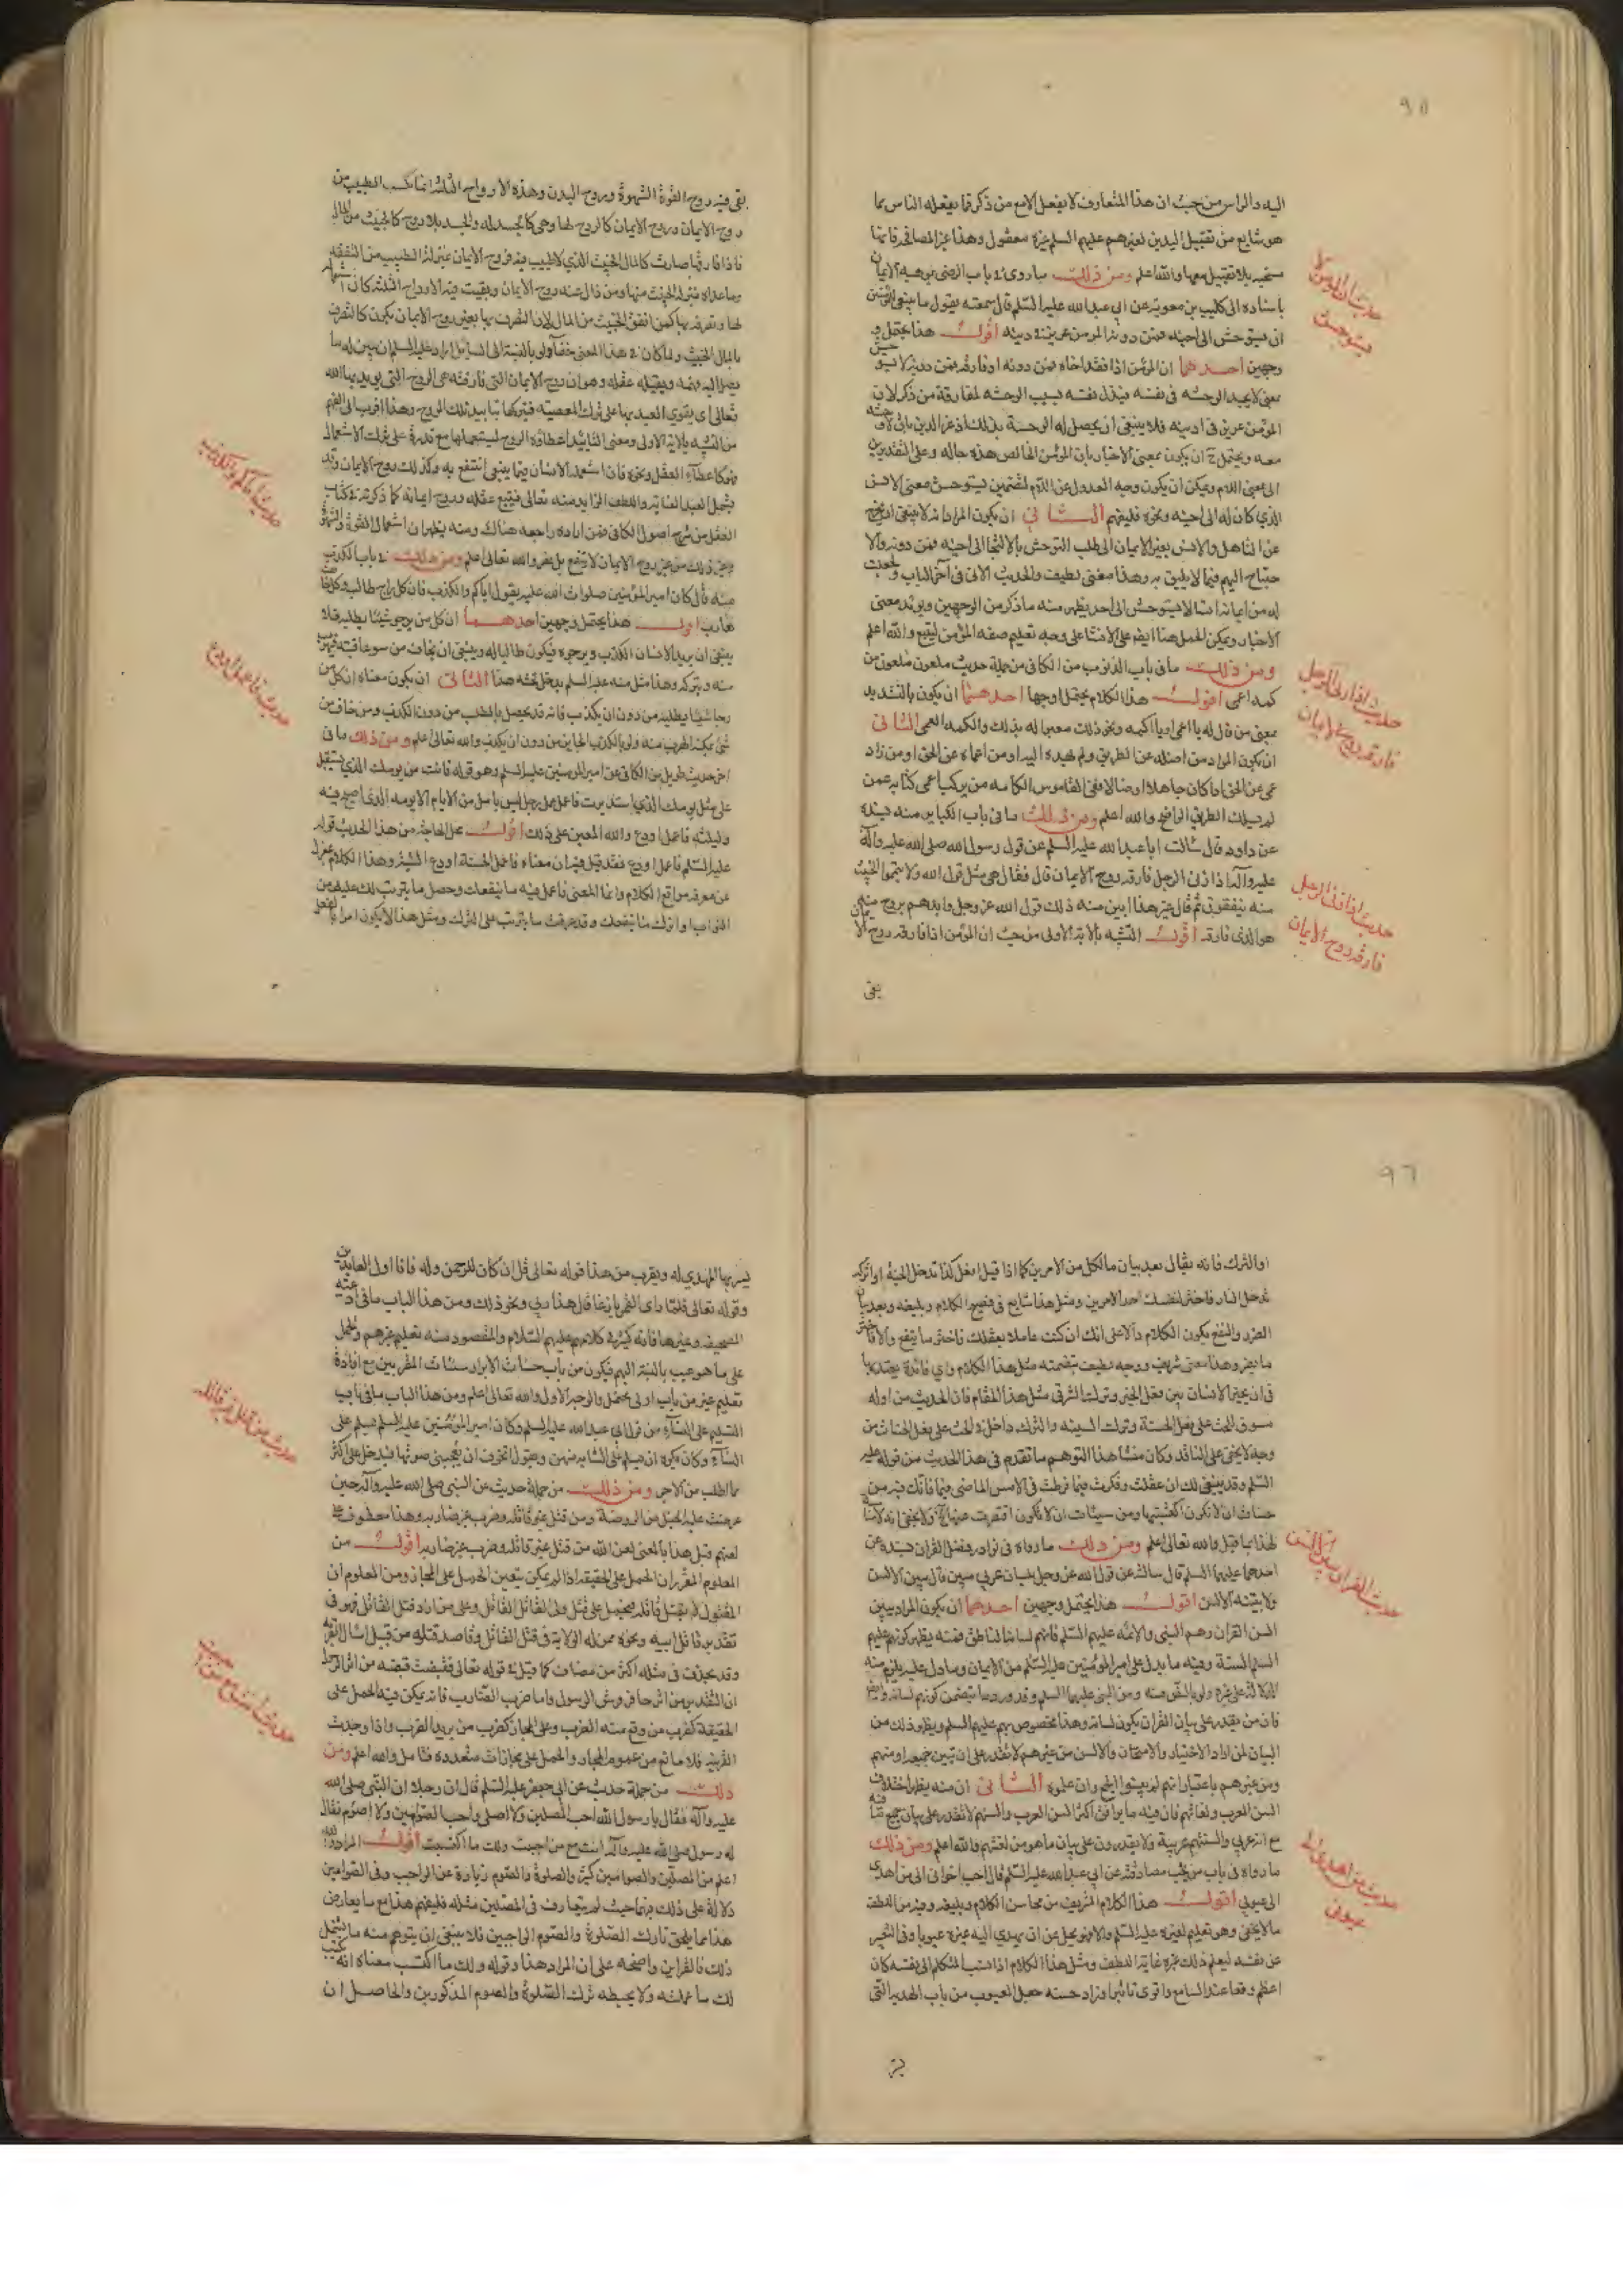 ٩٥
اليه والراس من حيث ان هذا المتعارف لا يفعل الا مع من ذكر فما يفعله الناس مما
هو شايع من تقبيل اليدين لغيرهم عليهم السلم غيره معقول وهذا غير المصافحه فانها
مستحبه بلا تقبيل معها والله اعلم ومن ذلك ما روى في باب الرضى بموهبه الايمان
باسناده الى كليب بن معويه عن ابي عبد الله عليه السلم قال سمعته يقول ما ينبغي للمؤمن
ان يستوحش الى اخيه فمن دونه المؤمن عزيز في دينه اقول هذا يحتمل
وجهين احدهما ان المؤمن اذا فقد اخاه فمن دونه او فارقه فمن دونه لا يستوحش
بمعنى لا يجد الوحشه في نفسه فيذل نفسه بسبب الوحشه لمفارقه من ذكر لان
المؤمن عزيز في دينه فلا ينبغي ان يحصل له الوحشة بذلك اذ عز الدين باق لا وحشه
معه ويحتمل ح ان يكون بمعنى الاخبار بان المؤمن الخالص هذه حاله وعلى التقديرين
الى بمعنى اللام ويمكن ان يكون وجه العدول عن اللام لتضمين يستوحش معنى الانس
الذي كان له الى اخيه ونحوه فليفهم الثاني ان يكون المراد انه لا ينبغي ان يخرج
عن التاهل والانس بغير الايمان الى طلب التوحش بالالتجا الى اخيه فمن دونه والا
حتياج اليهم فيما لا يليق به وهذا معنى لطيف والحديث الاتي في آخر الباب وجعلت
له من ايمانه انسا لا يستوحش الى احد يظهر منه ما ذكر من الوجهين ويؤيد معنى
الاخبار ويمكن الحمل هنا ايضا على الانشا على وجه تعليم صفه المؤمن ليتبع والله اعلم
ومن ذلك ما في باب الذنوب من الكافي من جملة حديث ملعون ملعون من
كمه اعمى اقول هذا الكلام يحتمل اوجها احدهما ان يكون بالتشديد
بمعنى من قال له يا اعمى او يا اكمه ونحو ذلك معيرا له بذلك والكمه العمى الثاني
ان يكون المراد من اضله عن الطريق ولم يهده اليه او من اعماه عن الحق او من زاد
عمى عن الحق اذا كان جاهلا او ضالا ففي القاموس الكامه من يركب اعمى كنايه عمن
لم يسلك الطريق الواضح والله اعلم ومن ذلك ما في باب الكباير منه بسنده
عن داود قال سالت ابا عبد الله عليه السلم عن قول رسول الله صلى الله عليه وآله
عليه وآله اذا زنى الرجل فارقه روح الايمان قال فقال هي مثل قول الله ولا تيمموا الخبيث
منه تنفقون ثم قال غير هذا ابين منه ذلك قول الله عز وجل وايدهم بروح منه
هو الذي فارقه اقول التشبه بالايه الاولى من حيث ان المؤمن اذا فارقه روح الايمان
بقى
حديث اذا زنى الرجل
فارقه روح الايمان
حديث اذا زنى الرجل
فارقه روح الايمان
بقى فيه روح القوة الشهوة وروح البدن وهذه الارواح الثلثه انما تكسب الطيب من
روح الايمان وروح الايمان كالروح لها وهي كالجسد له والجسد بلا روح كالخبيث من المال
فاذا فارقها صارت كالمال الخبيث الذي لا طيب فيه فروح الايمان بمنزلة الطيب من النفقه
وما عداه بمنزله الخبيث منها ومن زال عنه روح الايمان وبقيت فيه الارواح الثلثه كان استعماله
لها وتصرفه بها كمن انفق الخبيث من المال لان التصرف بها بغير روح الايمان يكون كالتصرف
بالمال الخبيث ولما كان في هذا المعنى خفاء ولو بالنسبة الى السائل اراد عليه السلم ان يبين له ما
يصل اليه فهمه ويقبله عقله وهو ان روح الايمان التي فارقته هي الروح التي يؤيد بها الله
تعالى اي يقوى العبد بها على ترك المعصيه فتركها تاييد تلك الروح وهذا اقرب الى الفهم
من التشبه بالايه الاولى ومعنى التاييد اعطاؤه الروح ليستعملها مع قدرته على ترك الاستعمال
فهو كاعطاء العقل ونحوه فان استعمله الانسان فيما ينبغي انتفع به وكذلك روح الايمان وقد
يشمل العبد العنايه واللطف الزايد منه تعالى فيتبع عقله وروح ايمانه كما ذكرته في كتاب
العقل من شرح اصول الكافي فمن اراده راجعه هناك ومنه يظهر ان استعمال القوة والشهوة
وغير ذلك من غير روح الايمان لا ينفع بل يضر والله تعالى اعلم ومن ذلك في باب الكذب
منه قال كان امير المؤمنين صلوات الله عليه يقول اياكم والكذب فان كل راج طالب وكل خائف
هارب اقول هذا يحتمل وجهين احدهما ان كل من يرجو شيئا يطلبه فلا
ينبغي ان يريد الانسان الكذب ويرجوه فيكون طالبا له وينبغي ان يخاف من سوء عاقبته فيهرب
منه ويتركه وهذا مثل منه عليه السلم يدخل تحته هذا الثاني ان يكون معناه ان كل من
رجا شيئا يطلبه من دون ان يكذب فانه قد يحصل بالطلب من دون الكذب ومن خاف من
شئ يمكنه الهرب منه ولو بالكذب الجايز من دون ان يكذب والله تعالى اعلم ومن ذلك ما في
اخر حديث طويل من الكافي عن امير المؤمنين عليه السلم وهو قوله فانت من يومك الذي تستقبل
على مثل يومك الذي استدبرت فاعمل عمل رجل ليس يامل من الايام الا يومه الذي اصبح فيه
وليلته فاعمل او دع والله المعين على ذلك اقول محل الحاجة من هذا الحديث قوله
عليه السلم فاعمل او دع فقد قيل فيه ان معناه فاعمل الحسنة او دع السيئه وهذا الكلام بمعزل
عن معرفه مواقع الكلام وانما المعنى فاعمل فيه ما ينفعك وحصل ما يترتب لك عليه من
الثواب او اترك ما ينفعك وقد عرفت ما يترتب على الترك ومثل هذا لا يكون امرا بالفعل
حديث اياكم والكذب
حديث فاعمل او دع
٩٦
او الترك فانه يقال بعد بيان ما لكل من الامرين كما اذا قيل افعل كذا تدخل الجنة او اتركه
تدخل النار فاختر لنفسك احد الامرين ومثل هذا شايع في فصيح الكلام وبليغه وبعد بيان
الضرر والنفع يكون الكلام دالا على انك ان كنت عاملا بعقلك فاختر ما ينفع والا فاختر
ما يضر وهذا معنى شريف ووجه لطيف تضمنه مثل هذا الكلام واي فائدة يعتد بها
في ان يخير الانسان بين فعل الخير وترك الشر في مثل هذا المقام فان الحديث من اوله
مسوق للحث على فعل الحسنة وترك السيئه والترك داخل في الحث على فعل الحسنات من
وجه لا يخفى على الناقد وكان منشا هذا التوهم ما تقدم في هذا الحديث من قوله عليه
السلم وقد ينبغي لك ان عقلت وفكرت فيما فرطت في الامس الماضي فيما فاتك فيه من
حسنات ان لا تكون اكتسبتها ومن سيئات ان لا تكون اقصرت عنها الخ ولا يخفى انه لا
لهذا بما قيل والله تعالى اعلم ومن ذلك ما رواه في نوادر فضل القران بسنده عن
احدهما عليهما السلم قال سالته عن قول الله عز وجل بلسان عربي مبين قال يبين الالسن
ولا تبينه الالسن اقول هذا يحتمل وجهين احدهما ان يكون المراد يبين
السن القران وهم النبي والائمة عليهم السلم فانهم لسانه الناطق فمنه يظهر كونهم عليهم
السلم السنة وفيه ما يدل على امير المؤمنين عليه السلم من الايمان وما دل عليه يلزم منه
الدلاله على غيره ولو بالنص منه ومن النبي عليهما السلم وقد ورد ما يتضمن كونهم لسانه وايضا
فان من يقدر على بيان القران يكون لسانه وهذا مخصوص بهم عليهم السلم ويظهر ذلك من
البيان لمن اراد الاختبار والامتحان والالسن من غيرهم لا تقدر على ان تبين جميعه او منهم
ومن غيرهم باعتبار انهم لم يبينوا الجميع وان علموه الثاني ان منه يظهر اختلاف
السن العرب ولغاتهم فان فيه ما يوافق اكثر السن العرب والسنتهم لا تقدر على بيان جميع ما فيه
مع انه عربي والسنتهم عربية ولا يقدرون على بيان ما هو من لغتهم والله اعلم ومن ذلك
ما رواه في باب من يجب مصادقته عن ابي عبد الله عليه السلم قال احب اخواني الى من اهدى
الى عيوبي اقول هذا الكلام الشريف من محاسن الكلام وبليغه وفيه من اللطف
ما لا يخفى وهو تعليم لغيره عليه السلم والا فهو يجل عن ان يهدي اليه غيره عيوبا وفي التعبير
عن نفسه ليعلم ذلك غيره غاية اللطف ومثل هذا الكلام اذا نسبه المتكلم الى نفسه كان
اعظم وقعا عند السامع واقوى تاثيرا وزاد حسنه جعل العيوب من باب الهديه التي
حديث القران يبين الالسن
حديث من اهدى الى
عيوبي
يسر بها المهدى له ويقرب من هذا قوله تعالى قل ان كان للرحمن ولد فانا اول العابدين
وقوله تعالى فلما راى القمر بازغا قال هذا ربي ونحو ذلك ومن هذا الباب ما في ادعيه
الصحيفه وغيرها فانه كثير في كلامهم عليهم السلام والمقصود منه تعليم غيرهم والحمل
على ما هو عيب بالنسبة اليهم فيكون من باب حسنات الابرار سيئات المقربين مع افادة
تعليم غيره من باب اولى محتمل والوجه الاول والله تعالى اعلم ومن هذا الباب ما في باب
التسليم على النساء من قول ابي عبد الله عليه السلم وكان امير المؤمنين عليه السلم يسلم على
النساء وكان يكره ان يسلم على الشابه منهن ويقول اتخوف ان يعجبني صوتها فيدخل على اكثر
مما اطلب من الاجر ومن ذلك من جملة حديث عن النبي صلى الله عليه وآله حين
عرضت عليه الخيل من الروضة ومن قتل غير قاتله وضرب غير ضاربه وهذا معطوف على
لعنهم قبل هذا بالمعنى لعن الله من قتل غير قاتله وضرب غير ضاربه اقول من
المعلوم المقرر ان الحمل على الحقيقه اذا لم يمكن يتعين الحمل على المجاز ومن المعلوم ان
المقتول لم يقتل قاتله فيحمل على قتل ولى القاتل القاتل وعلى من اراد قتل القاتل فهو في
تقدير قاتل ابيه ونحوه ممن له الولاية في قتل القاتل وقاصد قتله من قبيل اسال القريه
وقد يحذف في مثله اكثر من مضاف كما قيل في قوله تعالى فقبضت قبضه من اثر الرسول
ان التقدير من اثر حافر فرس الرسول واما ضرب الضارب فانه يمكن فيه الحمل على
الحقيقة كضرب من وقع منه الضرب وعلى المجاز كضرب من يريد الضرب واذا وجدت
القرينه فلا مانع من عموم المجاز والحمل على مجازات متعدده فتامل والله اعلم ومن
ذلك من جملة حديث عن ابي جعفر عليه السلم قال ان رجلا اتى النبي صلى الله
عليه وآله فقال يا رسول الله احب المصلين ولا اصلى واحب الصوامين ولا اصوم فقال
له رسول الله صلى الله عليه وآله انت مع من احببت ولك ما اكتسبت اقول المراد والله
اعلم من المصلين والصوامين كثرة الصلوة والصوم زيادة عن الواجب وفي الصوامين
دلالة على ذلك بهما حيث لم يتعارف في المصلين مثله فليفهم هذا مع ما يعارض
هذا مما يلحق تارك الصلوة والصوم الواجبين فلا ينبغي ان يتوهم منه ما يشمل
ذلك فالقراين واضحه على ان المراد هذا وقوله ولك ما اكتسب معناه انه كتب
لك ما عملته ولا يحبطه ترك الصلوة والصوم المذكورين والحاصل ان
حديث من قتل غير قاتله